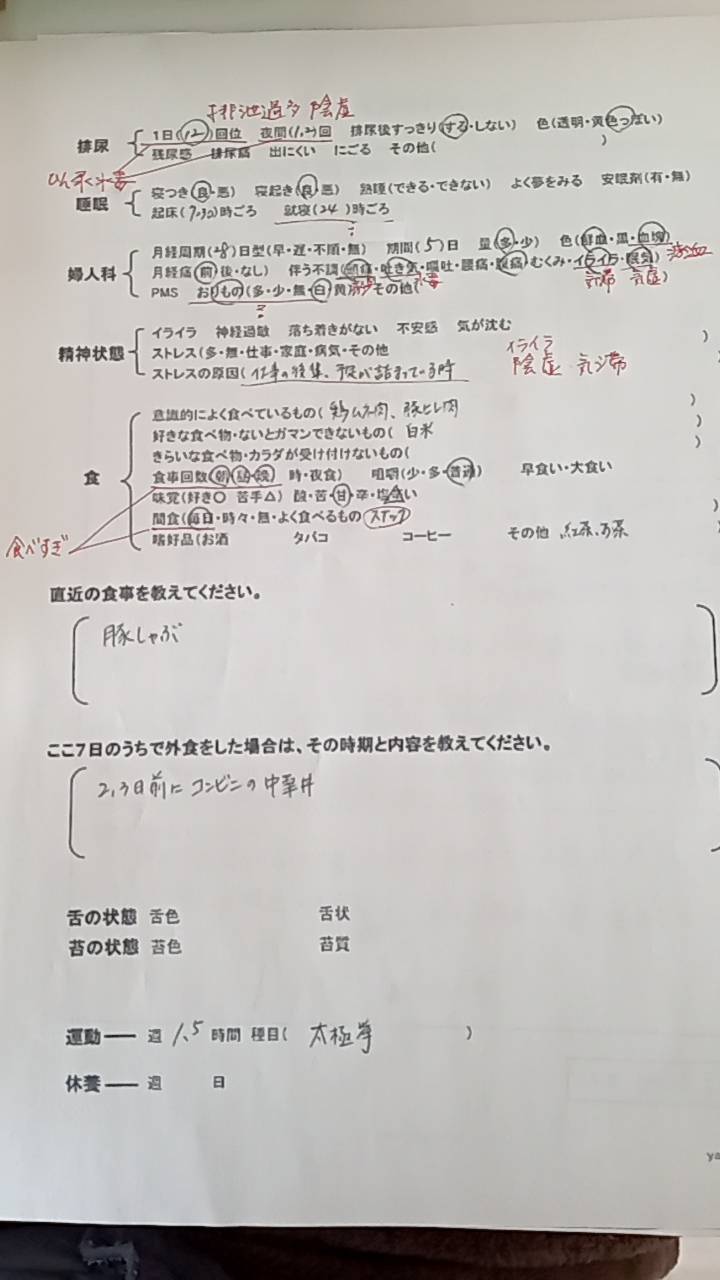 排泄過多 陰虚
排尿 1日(12)回位 夜間(1.2)回 排尿後すっきり(する・しない) 色(透明・黄色っぽい)
残尿感 排尿痛 出にくい にごる その他( )
ひん尿 水毒
睡眠 寝つき(良・悪) 寝起き(良・悪) 熟睡(できる・できない) よく夢をみる 安眠剤(有・無)
起床(7.30)時ごろ 就寝(24)時ごろ
?
婦人科 月経周期(28)日型(早・遅・不順・無) 期間(5)日 量(多・少) 色(鮮血・黒・血塊)
月経痛(前・後・なし) 伴う不調(頭痛・吐き気・嘔吐・腰痛・腹痛・むくみ・イライラ・眠気) 瘀血
PMS おりもの(多・少・無・白・黄) その他( 水毒 気滞 気虚 )
?
精神状態 イライラ 神経過敏 落ち着きがない 不安感 気が沈む
ストレス(多・無・仕事・家庭・病気・その他 )
ストレスの原因(仕事の後集、予定が詰まっている時
イライラ
陰虚 気滞
食 意識的によく食べているもの(鶏ムネ肉、豚ヒレ肉 )
好きな食べ物・ないとガマンできないもの(白米 )
きらいな食べ物・カラダが受け付けないもの( )
食事回数(朝・昼・晩 時・夜食) 咀嚼(少・多・普通) 早食い・大食い
味覚(好き〇 苦手△) 酸・苦・甘・辛・塩食い
間食(毎日・時々・無・よく食べるもの スナック )
食べすぎ
嗜好品(お酒 タバコ コーヒー その他 紅茶、お茶
直近の食事を教えてください。
豚しゃぶ
ここ7日のうちで外食をした場合は、その時期と内容を教えてください。
2,3日前にコンビニの中華丼
舌の状態 舌色 舌状
苔の状態 苔色 苔質
運動── 週 1.5 時間 種目( 太極拳 )
休養── 週 日
ya